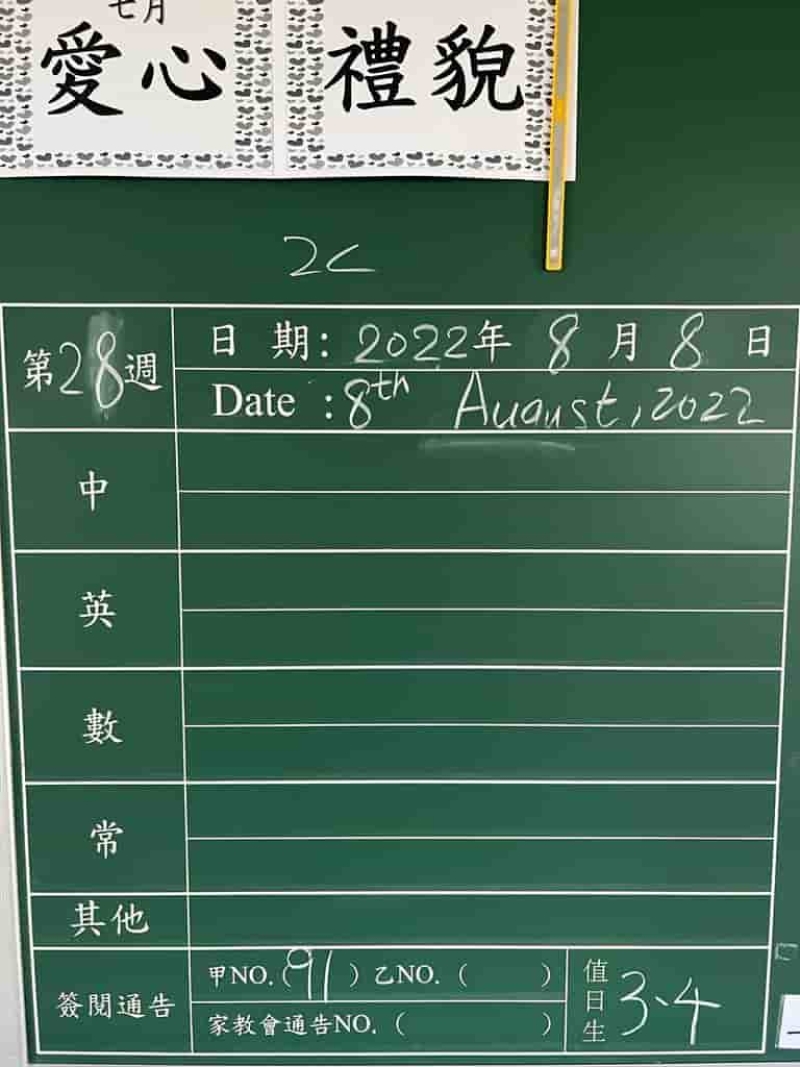 七月
愛心 禮貌
2C
第28週
日期: 2022年 8月8日
Date :8th August, 2022
中
英
數
常
其他
簽閱通告
甲NO.(91) 乙NO.( )
家教會通告NO.( )
值日生 3、4